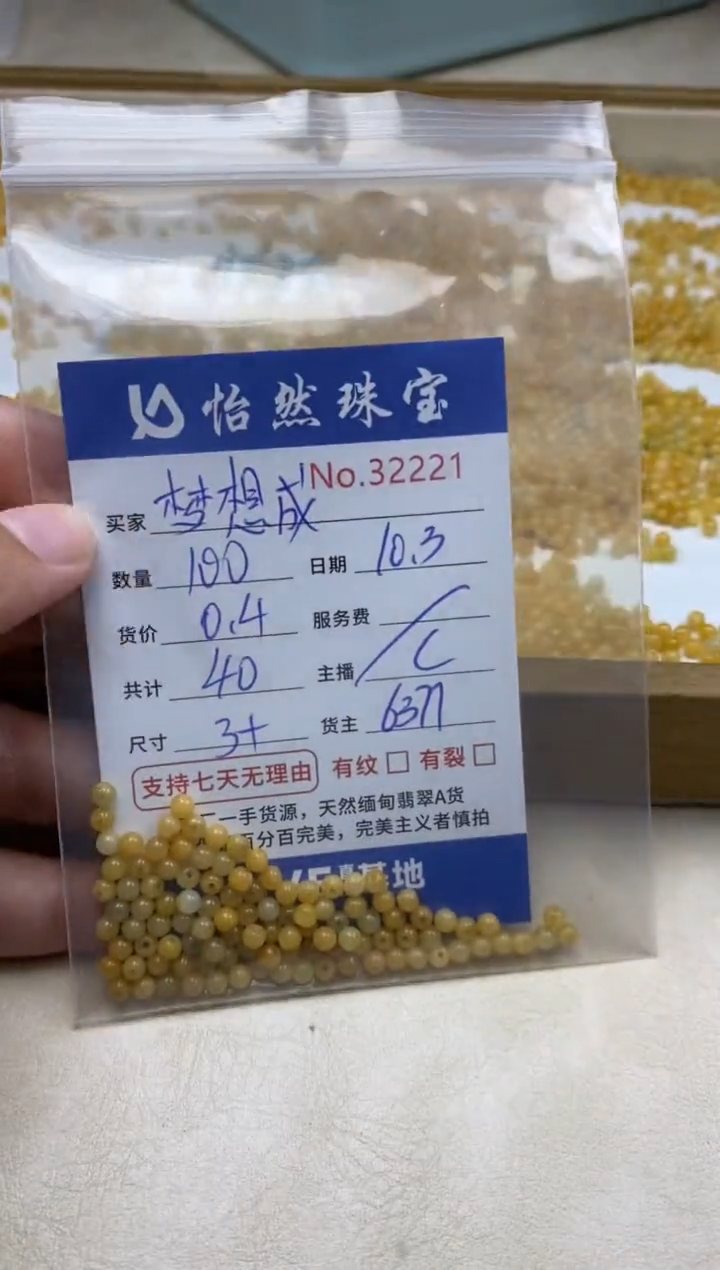 怡然珠宝
No.32221
买家 梦想成
数量 100 日期 10.3
货价 0.4 服务费 /
共计 40 主播 C
尺寸 3+ 货主 6371
支持七天无理由 有纹 有裂
一手货源，天然缅甸翡翠A货
百分百完美，完美主义者慎拍
基地